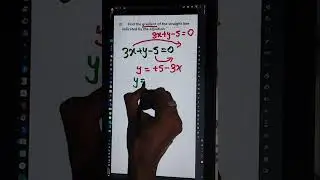 Find the gradient of the straight line
indicated by the equation.
3x+y-5=0
3x+y-5=0
y = +5-3x
y=